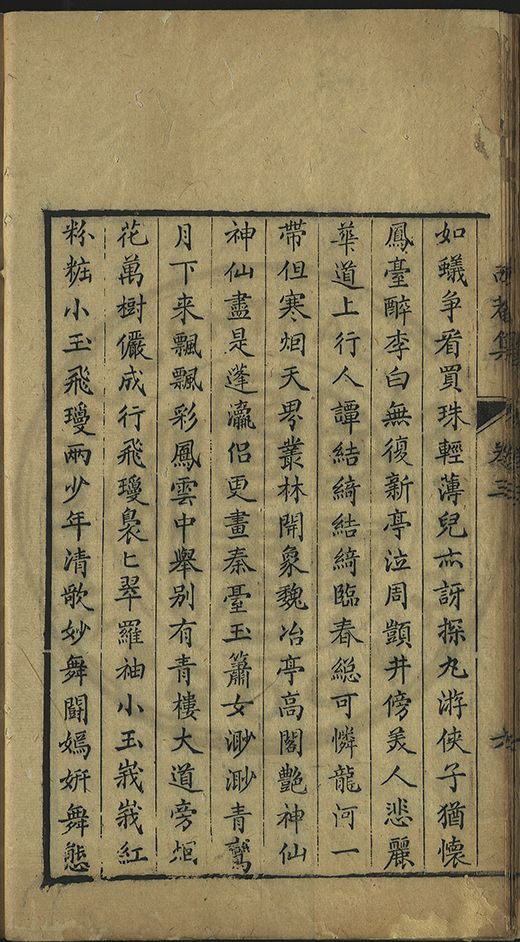 西菴集 卷三
如蟻爭看買珠輕薄兒亦訝探丸游俠子猶懷
鳳臺醉李白無復新亭泣周顗井傍美人悲麗
華道上行人譚結綺結綺臨春緫可憐龍河一
帶但寒烟天界叢林開象魏冶亭高閣艷神仙
神仙盡是蓬瀛侣更畫秦臺玉簫女渺渺青鸞
月下来飄飄彩鳳雲中舉别有青樓大道旁烟
花萬樹儼成行飛瓊裊匕翠羅袖小玉峩峩紅
粉粧小玉飛瓊兩少年清歌妙舞鬪嫣妍舞態